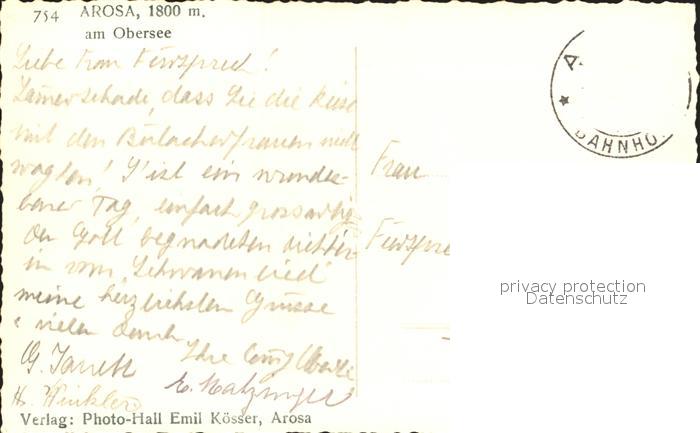 754 AROSA, 1800 m.
am Obersee
Liebe Frau Fürsprech!
Jammerschade, dass Sie die Reise
mit den Bülacherfrauen nicht
wagten! S'ist ein wunder-
barer Tag, einfach grossartig
der Gott begnadeten Dichter-
in vom "Schwanenlied"
meine herzlichsten Grüsse
& vielen Dank
Ihre
G.
H. Winkler
E. Matzinger
Verlag: Photo-Hall Emil Kösser, Arosa
Frau
Fürspre
A
BAHNHO
privacy protection
Datenschutz